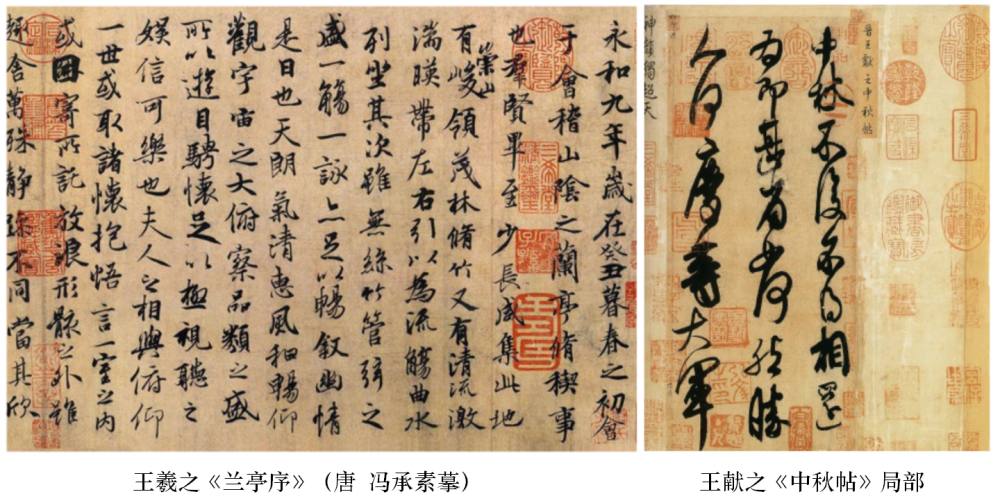 永和九年歲在癸丑暮春之初會
于會稽山陰之蘭亭脩禊事
也羣賢畢至少長咸集此地
有崇山峻領茂林脩竹又有清流激
湍暎帶左右引以為流觴曲水
列坐其次雖無絲竹管弦之
盛一觴一詠亦足以暢敘幽情
是日也天朗氣清惠風和暢仰
觀宇宙之大俯察品類之盛
所以遊目騁懷足以極視聽之
娛信可樂也夫人之相與俯仰
一世或取諸懷抱悟言一室之內
或因寄所託放浪形骸之外雖
趣舍萬殊靜躁不同當其欣
王羲之《兰亭序》（唐 冯承素摹）
晉王獻之中秋帖
中秋不復不得相還
為即甚省如何然勝
人何慶等大軍
王献之《中秋帖》局部